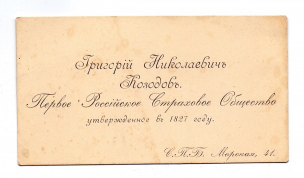 Григорій Николаевичъ
Колодовъ.
Первое Россійское Страховое Общество
утвержденное въ 1827 году.
С.П.Б. Морская, 41.